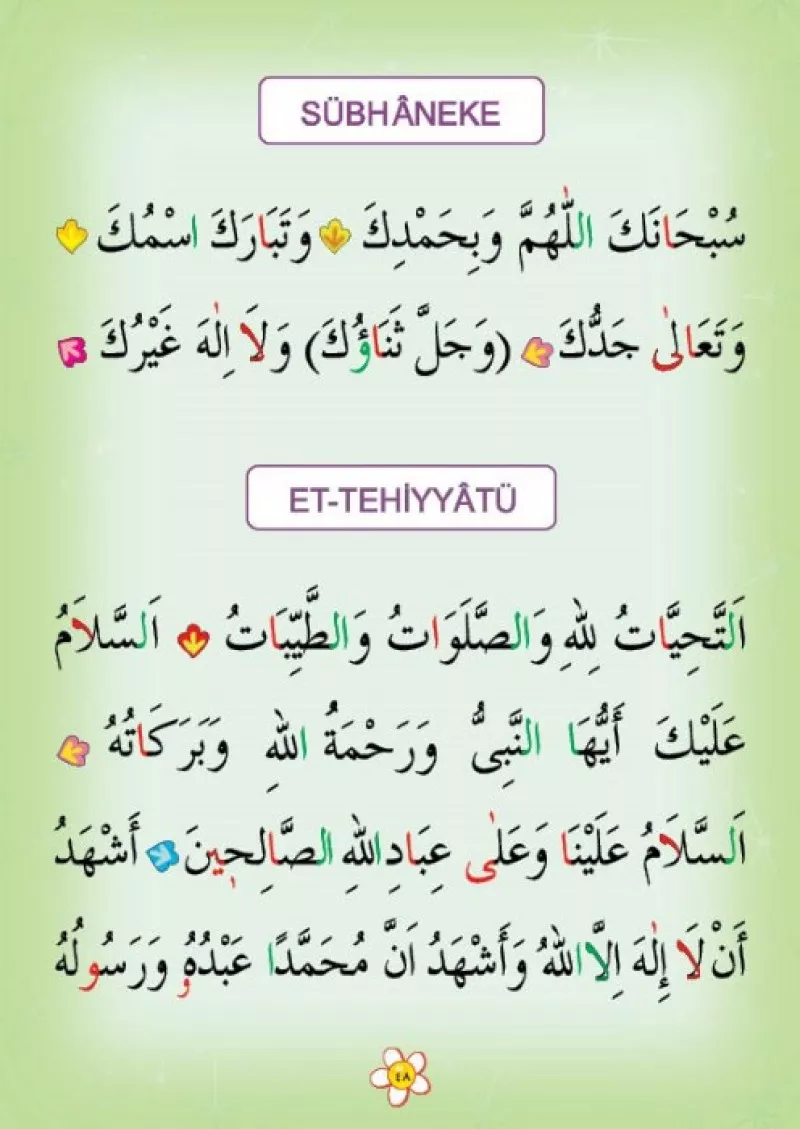 SÜBHÂNEKE
سُبْحَانَكَ اللّٰهُمَّ وَبِحَمْدِكَ وَتَبَارَكَ اسْمُكَ
وَتَعَالٰى جَدُّكَ (وَجَلَّ ثَنَاؤُكَ) وَلَا اِلٰهَ غَيْرُكَ
ET-TEHİYYÂTÜ
اَلتَّحِيَّاتُ لِلهِ وَالصَّلَوَاتُ وَالطَّيِّبَاتُ اَلسَّلَامُ
عَلَيْكَ أَيُّهَا النَّبِىُّ وَرَحْمَةُ اللهِ وَبَرَكَاتُهُ
اَلسَّلَامُ عَلَيْنَا وَعَلٰى عِبَادِ اللهِ الصَّالِحِينَ أَشْهَدُ
أَنْ لَا إِلٰهَ اِلَّا اللهُ وَأَشْهَدُ اَنَّ مُحَمَّدًا عَبْدُهُ وَرَسُولُهُ
٤٨